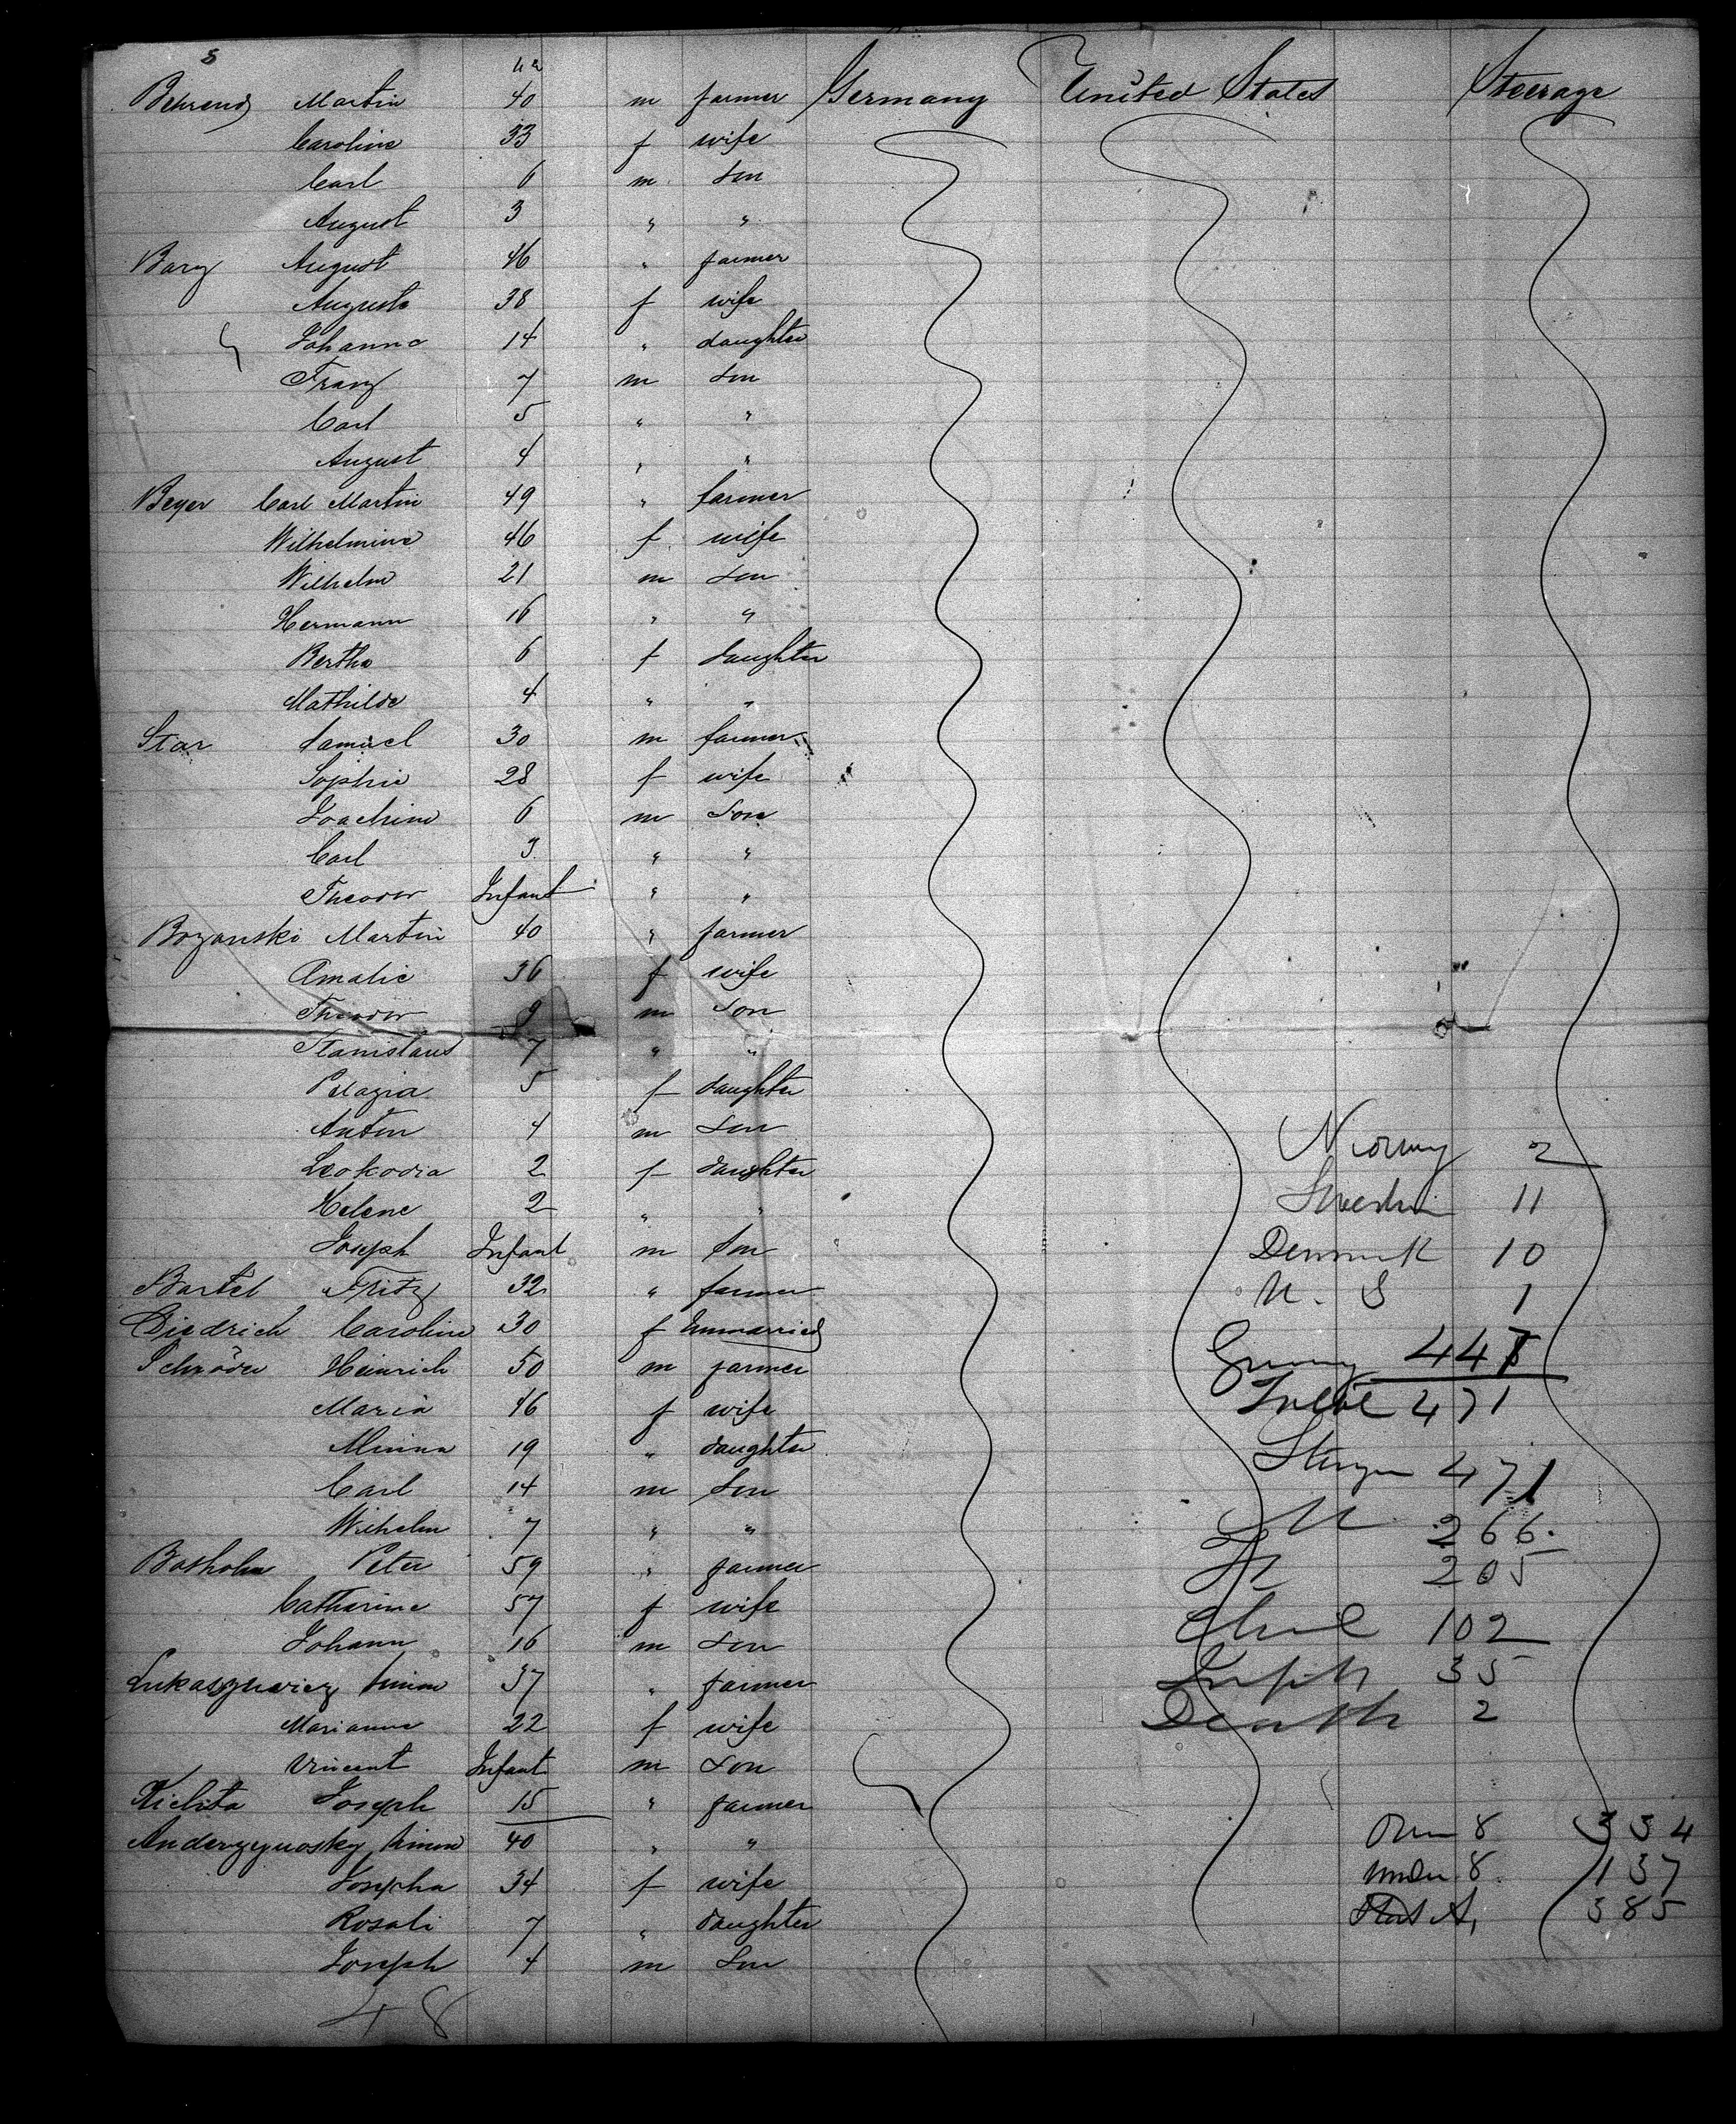 8
Behrend Martin 40 m farmer Germany United States Steerage
Caroline 33 f wife
Carl 6 m son
August 3 " "
Barz August 46 " farmer
Auguste 38 f wife
Johanna 14 " daughter
Franz 7 m son
Carl 5 " "
August 4 " "
Beyer Carl Martin 49 " farmer
Wilhelmine 46 f wife
Wilhelm 21 m son
Hermann 16 " "
Bertha 6 f daughter
Mathilde 4 " "
Star Samuel 30 m farmer
Sophie 28 f wife
Joachim 6 m son
Carl 3 " "
Theodor Infant " "
Bozanski Martin 40 " farmer
Amalie 36 f wife
Theodor 9 m son
Stanislaus 7 " "
Pelagia 5 f daughter
Anton 4 m son
Norway 2
Leokodia 2 f daughter
Sweden 11
Helene 2 " "
Joseph Infant m son
Denmark 10
Bartel Fritz 32 " farmer
U. S 1
Diedrich Caroline 30 f unmarried
Schröder Heinrich 50 m farmer
Germy 447
Maria 46 f wife
Total 471
Minna 19 " daughter
471
Carl 14 m son
M 266
Wilhelm 7 " "
205
Basholm Peter 59 " farmer
Catharine 57 f wife
102
Johann 16 m son
35
Lukaszewicz Simon 37 " farmer
Marianne 22 f wife
Death 2
Vincent Infant m son
Kichita Joseph 15 " farmer
8 334
Simon 40 " "
under 8 137
Josepha 34 f wife
385
Rosali 7 " daughter
Joseph 4 m son
48